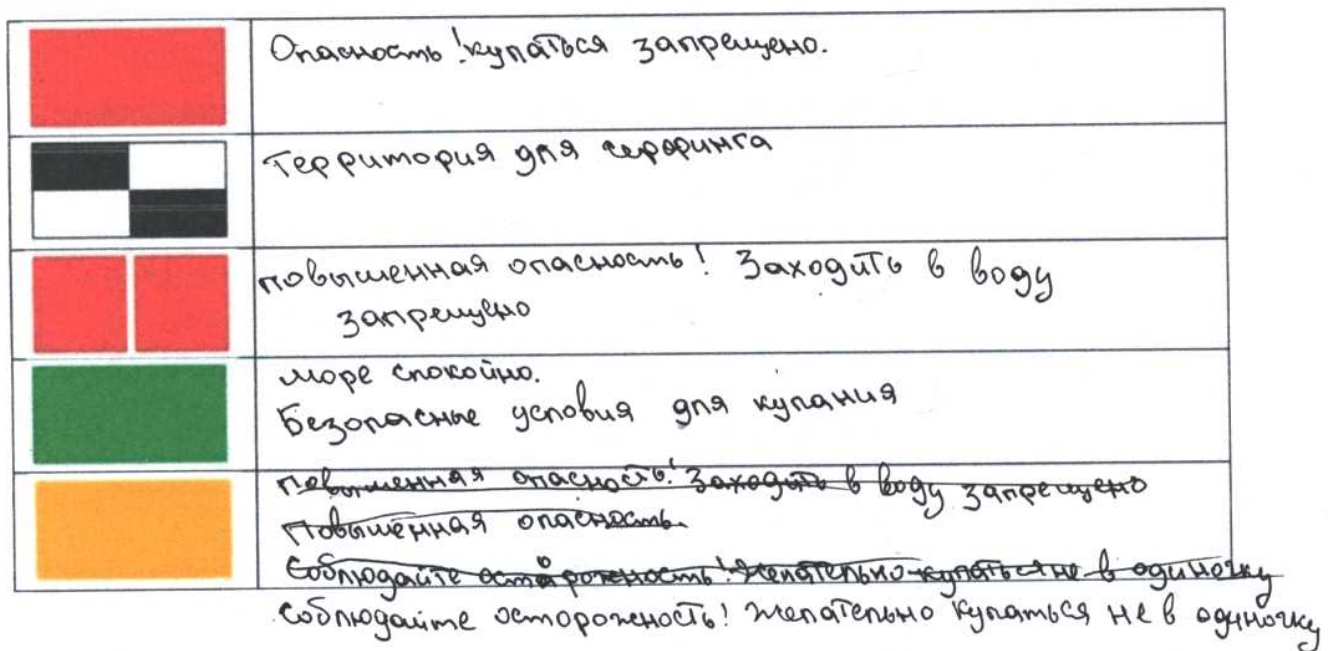 Опасность! купаться запрещено.
Территория для серфинга
повышенная опасность! Заходить в воду
запрещено
море спокойно.
Безопасные условия для купания
Повышенная опасность! Заходить в воду запрещено
Повышенная опасность.
Соблюдайте осторожность! Желательно купаться не в одиночку
соблюдайте осторожность! Желательно купаться не в одиночку